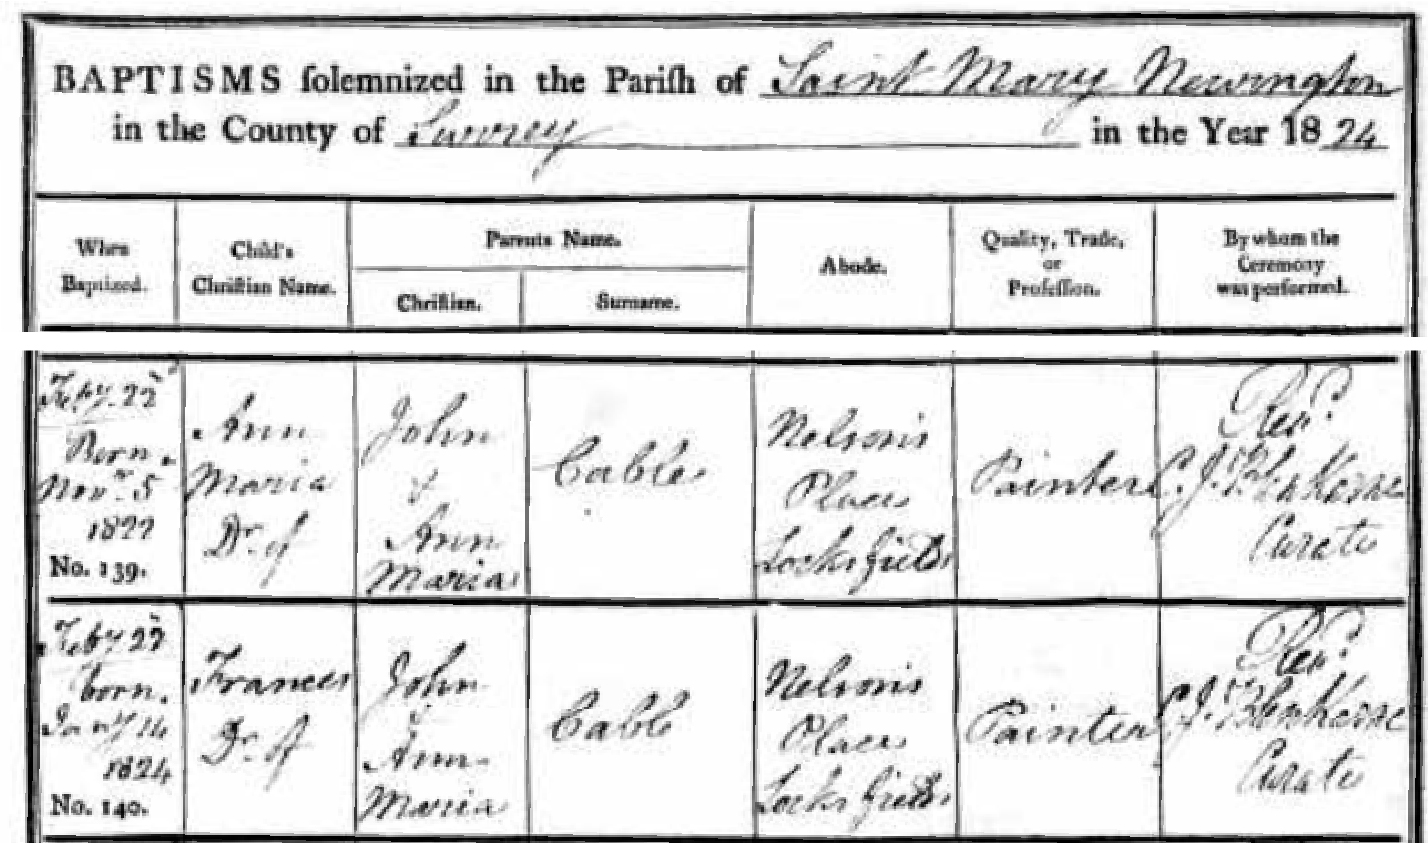 BAPTISMS ſolemnized in the Pariſh of Saint Mary Newington
in the County of Surrey in the Year 1824
When
Baptized.
Child's
Chriſtian Name.
Parents Name.
Chriſtian.
Surname.
Abode.
Quality, Trade,
or
Profeſſion.
By whom the
Ceremony
was performed.
Feby. 22d
Born
Novr. 5
1822
No. 139.
Ann
Maria
Dr. of
John
&
Ann
Maria
Cable
Nelson's
Place
Locks fields
Painter
Revd.
C. J.
Curate
Feby 22d
born
Jany 14
1824
No. 140.
Frances
Dr. of
John
&
Ann
Maria
Cable
Nelson's
Place
Locks fields
Painter
Revd.
C. J.
Curate